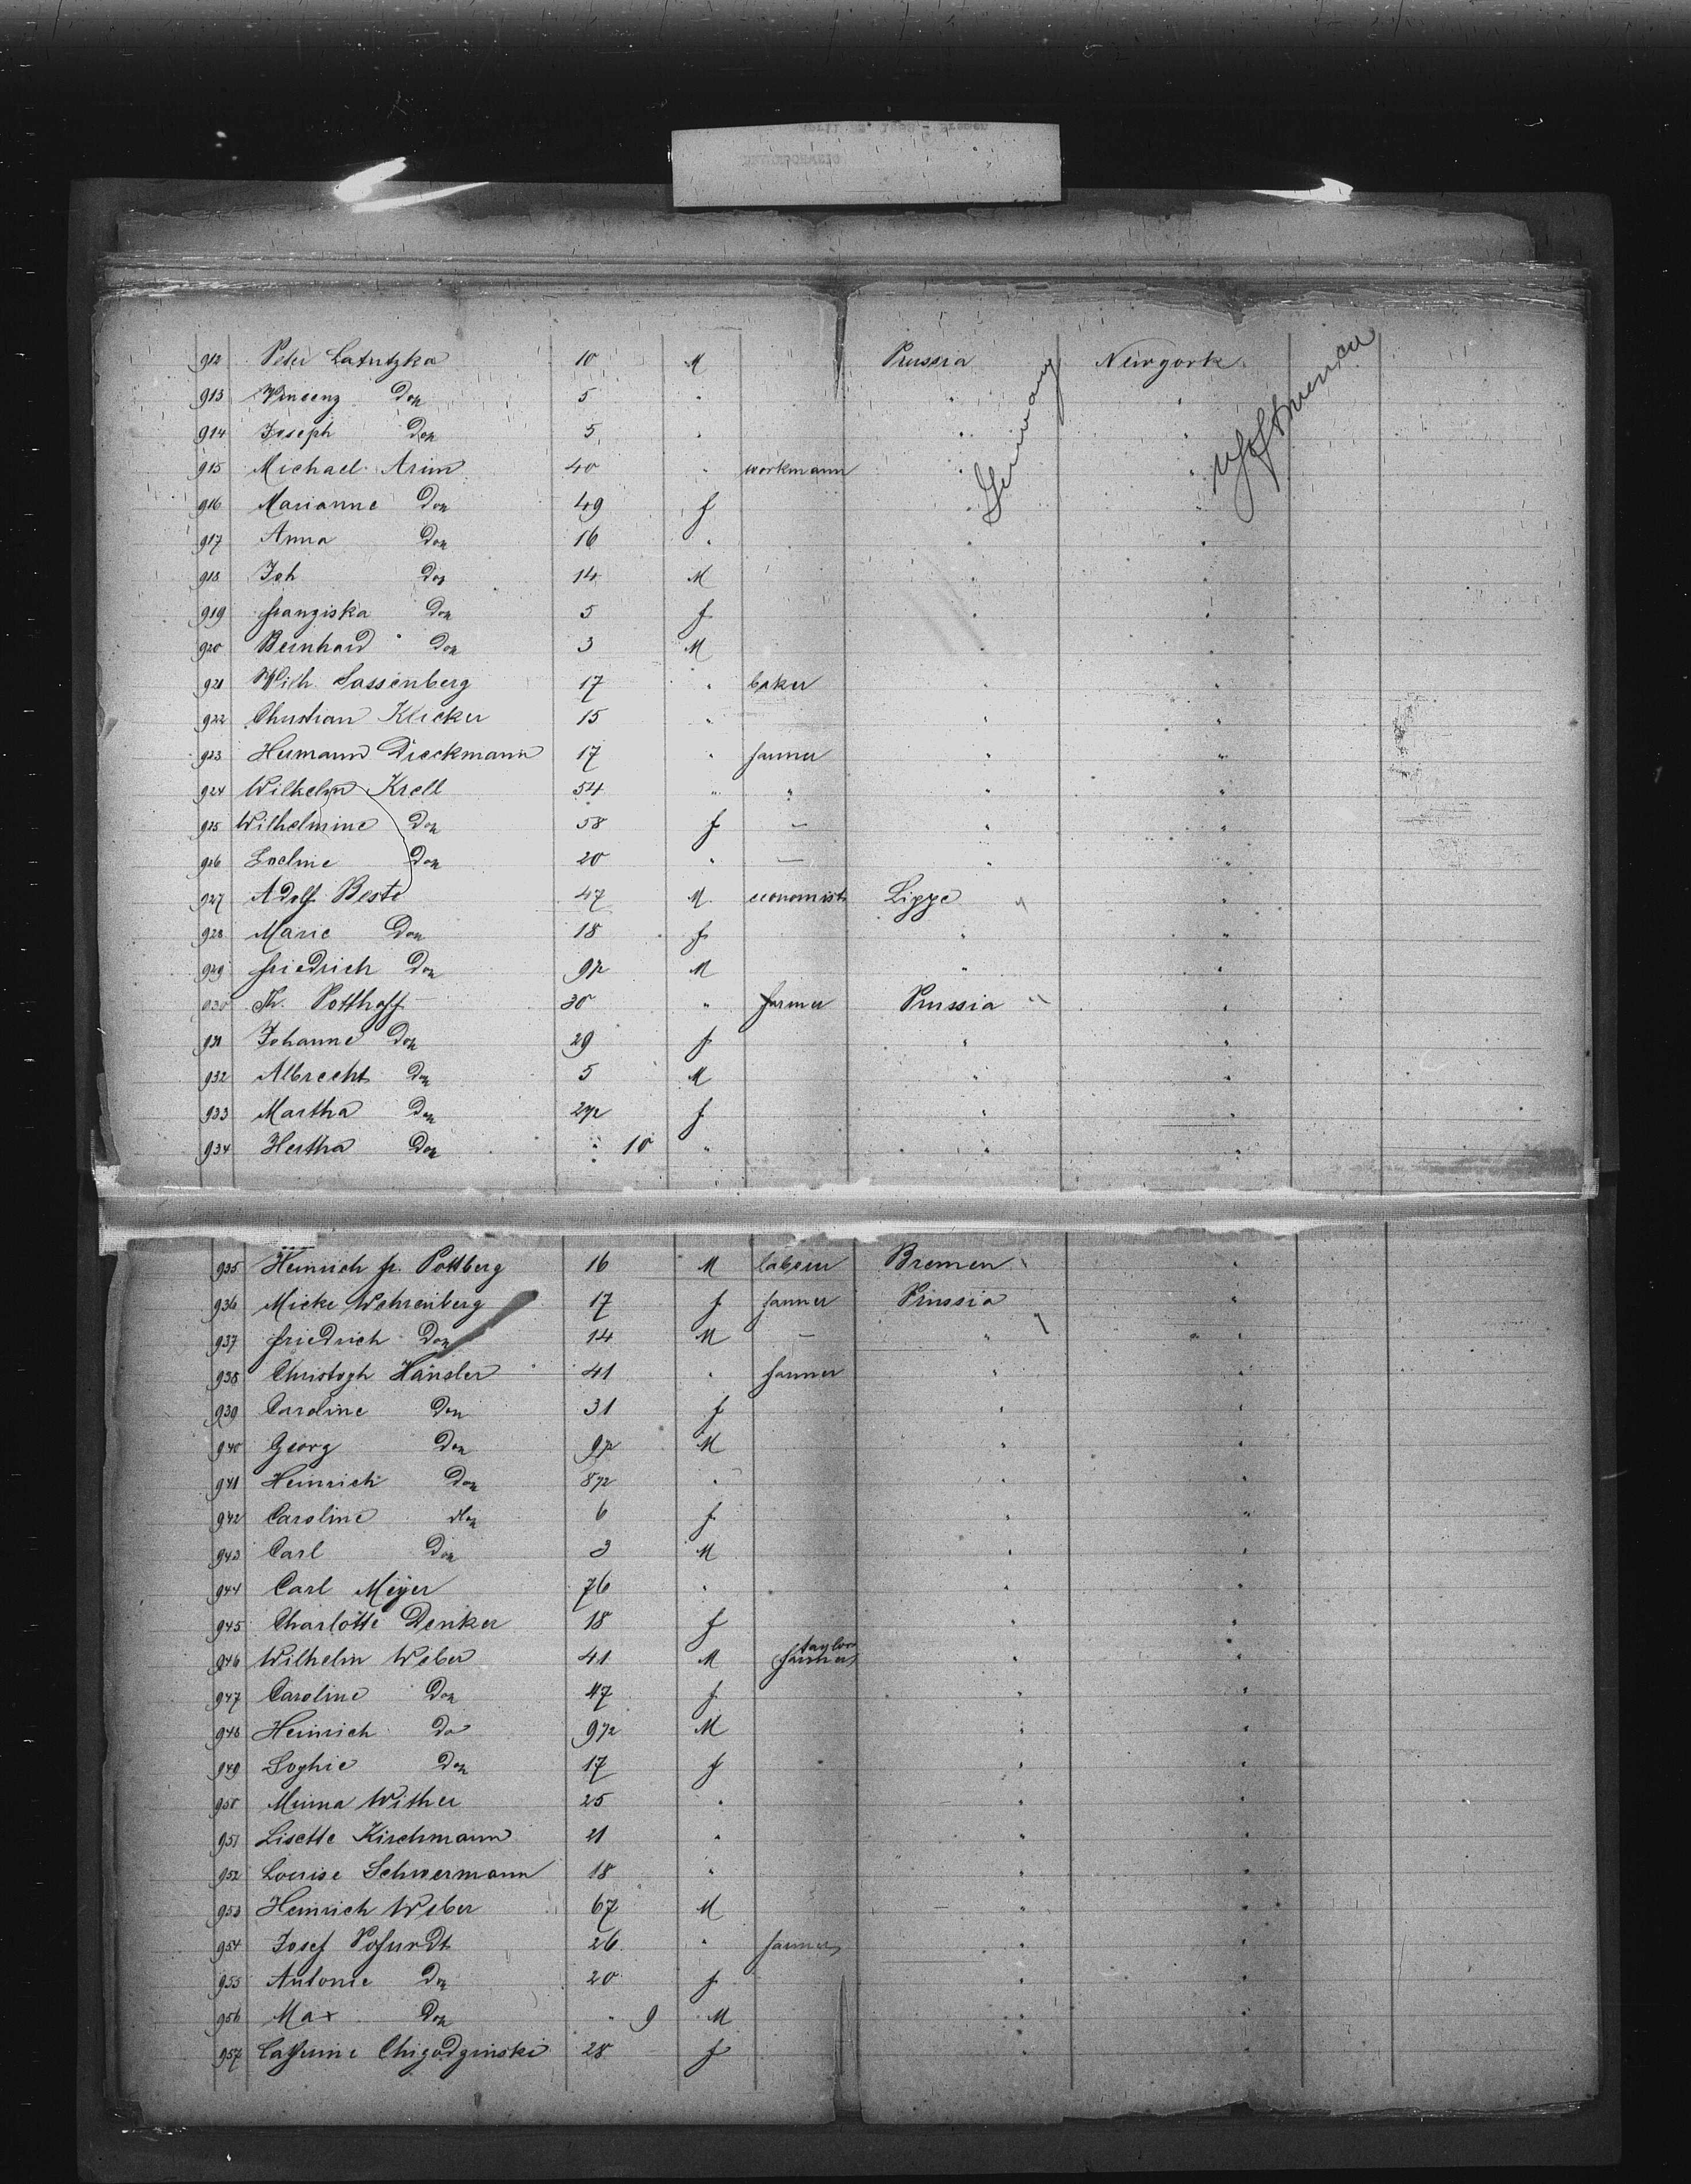 912 Peter Latutzka 10 M Prussia Newyork
Germany
U S of America
913 Vinsenz do 5 " " "
914 Joseph do 5 " " "
915 Michael Arim 40 " workmann " "
916 Marianne do 49 f " "
917 Anna do 16 " " "
918 Joh do 14 M " "
919 Franziska do 5 f " "
920 Bernhard do 3 M " "
921 Wilh. Sassenberg 17 " baker " "
922 Christian Klicker 15 " " "
923 Hermann Dieckmann 17 " farmer " "
924 Wilhelm Krell 54 " " " "
925 Wilhelmine do 58 f — " "
926 do 20 " — " "
927 Adolf Beste 47 M economist Lippe "
928 Marie do 18 f " "
929 Friedrich do 9 1/2 M " "
930 Th. Potthoff 30 " farmer Prussia "
931 Johanne do 29 f " "
932 Albrecht do 5 M " "
933 Martha do 2 1/2 f " "
934 Hertha do " 10 " " "
935 Heinrich fr. Pottberg 16 M labour Bremen "
936 Micke Wehrenberg 17 f farmer Prussia "
937 Friedrich do 14 M — " "
938 Christoph Hänsler 41 " farmer " "
939 Caroline do 31 f " "
940 Georg do 9 1/2 M " "
941 Heinrich do 8 1/2 " " "
942 Caroline do 6 f " "
943 Carl do 3 M " "
944 Carl Meyer 76 " " "
945 Charlotte Denker 18 f " "
946 Wilhelm Weber 41 M taylor farmer " "
947 Caroline do 47 f " "
948 Heinrich do 9 1/2 M " "
949 Sophie do 17 f " "
950 Minna Wither 25 " " "
951 Lisette Kirchmann 21 " " "
952 Louise Schwermann 18 " " "
953 Heinrich Weber 67 M " "
954 Josef Pofurdt 26 " farmer " "
955 Antonie do 20 f " "
956 Max do " 9 M " "
957 Chigodginski 28 f " "